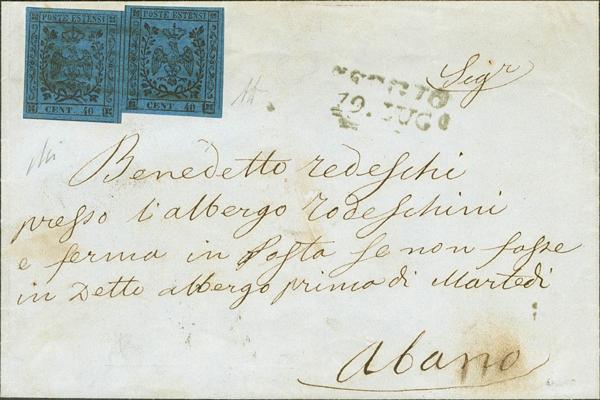 POSTE ESTENSI POSTE ESTENSI
CENT. 40 CENT. 40
REGGIO
19. LUGO
Sigr
Benedetto Tedeschi
presso l'albergo Todeschini
e ferma in Posta se non fosse
in Detto albergo prima di Martedi
Abano